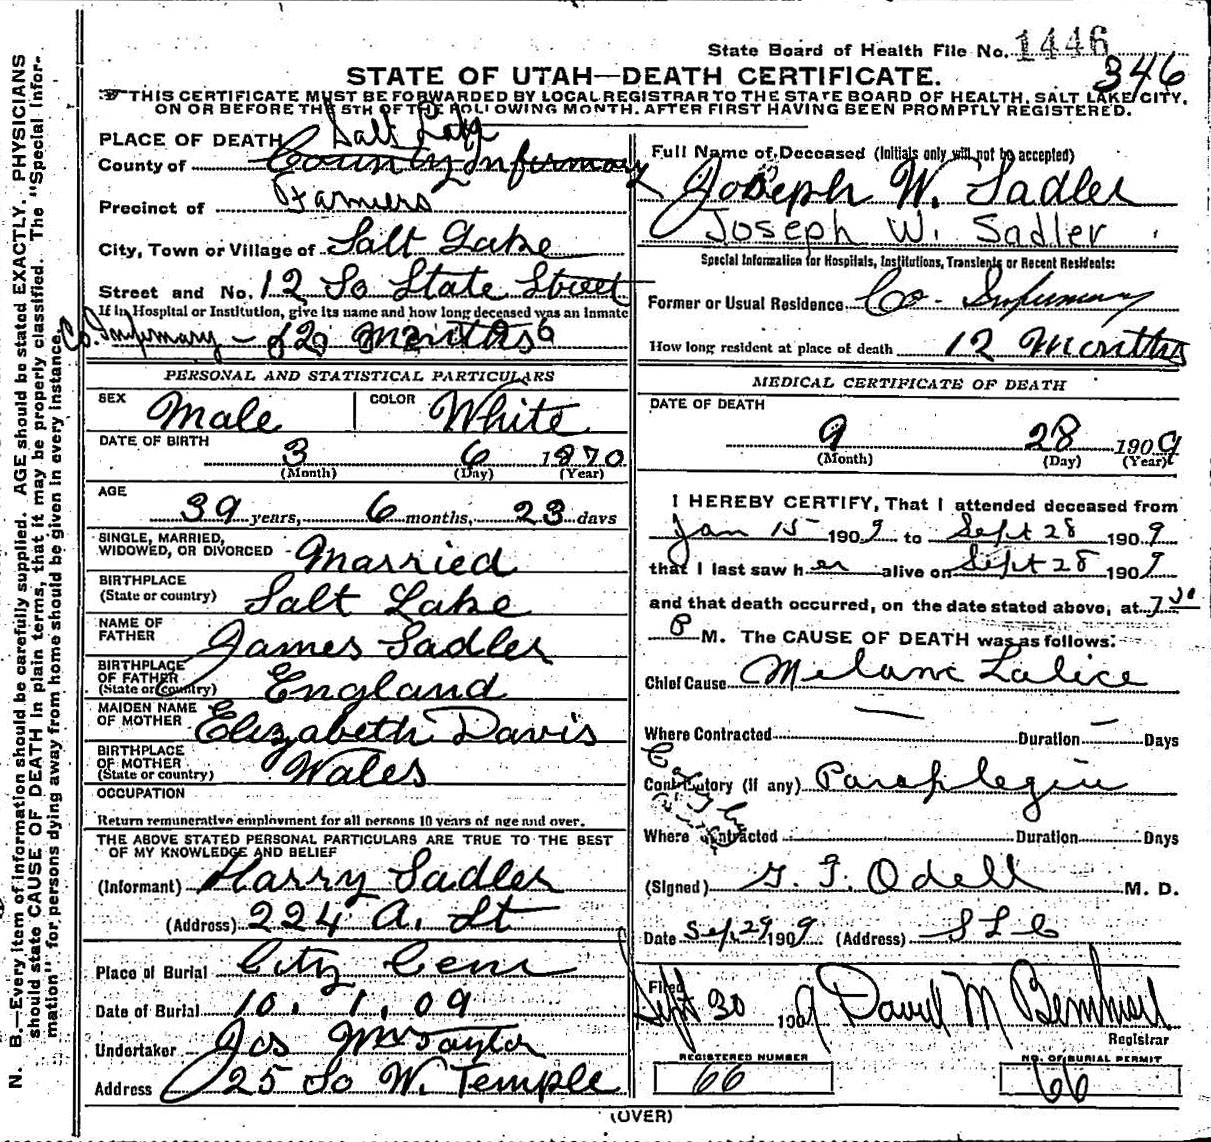 State Board of Health File No. 1446
346
STATE OF UTAH—DEATH CERTIFICATE.
THIS CERTIFICATE MUST BE FORWARDED BY LOCAL REGISTRAR TO THE STATE BOARD OF HEALTH, SALT LAKE CITY,
ON OR BEFORE THE 5TH OF THE FOLLOWING MONTH, AFTER FIRST HAVING BEEN PROMPTLY REGISTERED.
N. B.—Every item of information should be carefully supplied. AGE should be stated EXACTLY. PHYSICIANS
should state CAUSE OF DEATH in plain terms, that it may be properly classified. The "Special Infor-
mation" for persons dying away from home should be given in every instance.
PLACE OF DEATH Salt Lake
County of County Infirmary
Precinct of Farmers
City, Town or Village of Salt Lake
Street and No. 12 So State Street
If in Hospital or Institution, give its name and how long deceased was an Inmate
Co. Infirmary — Months
PERSONAL AND STATISTICAL PARTICULARS
SEX Male COLOR White
DATE OF BIRTH
3 6 1870
(Month) (Day) (Year)
AGE
39 years, 6 months, 23 days
SINGLE, MARRIED,
WIDOWED, OR DIVORCED Married
BIRTHPLACE
(State or country) Salt Lake
NAME OF
FATHER James Sadler
BIRTHPLACE
OF FATHER
(State or country) England
MAIDEN NAME
OF MOTHER Elizabeth Davis
BIRTHPLACE
OF MOTHER
(State or country) Wales
OCCUPATION
Return remunerative employment for all persons 10 years of age and over.
THE ABOVE STATED PERSONAL PARTICULARS ARE TRUE TO THE BEST
OF MY KNOWLEDGE AND BELIEF
(Informant) Harry Sadler
(Address) 224 A. St
Place of Burial City Cem
Date of Burial 10. 1. 09
Undertaker Jos Wm Taylor
Address 25 So W. Temple
Full Name of Deceased (Initials only will not be accepted)
Joseph W. Sadler
Joseph W. Sadler
Special Information for Hospitals, Institutions, Transients or Recent Residents:
Former or Usual Residence Co. Infirmary
How long resident at place of death 12 Months
MEDICAL CERTIFICATE OF DEATH
DATE OF DEATH
9 28 1909
(Month) (Day) (Year)
I HEREBY CERTIFY, That I attended deceased from
Jan 15 1909 to Sept 28 1909
that I last saw her alive on Sept 28 1909
and that death occurred, on the date stated above, at 7 30
P M. The CAUSE OF DEATH was as follows:
Chief Cause
Where Contracted Duration — Days
Contributory (if any) Paraplegia
Where Contracted Duration Days
(Signed) G. F. Odell M. D.
Date Sep 29 1909 (Address) S L C
Filed
Sept 30 1909 David M
Registrar
REGISTERED NUMBER NO. OF BURIAL PERMIT
66 66
(OVER)